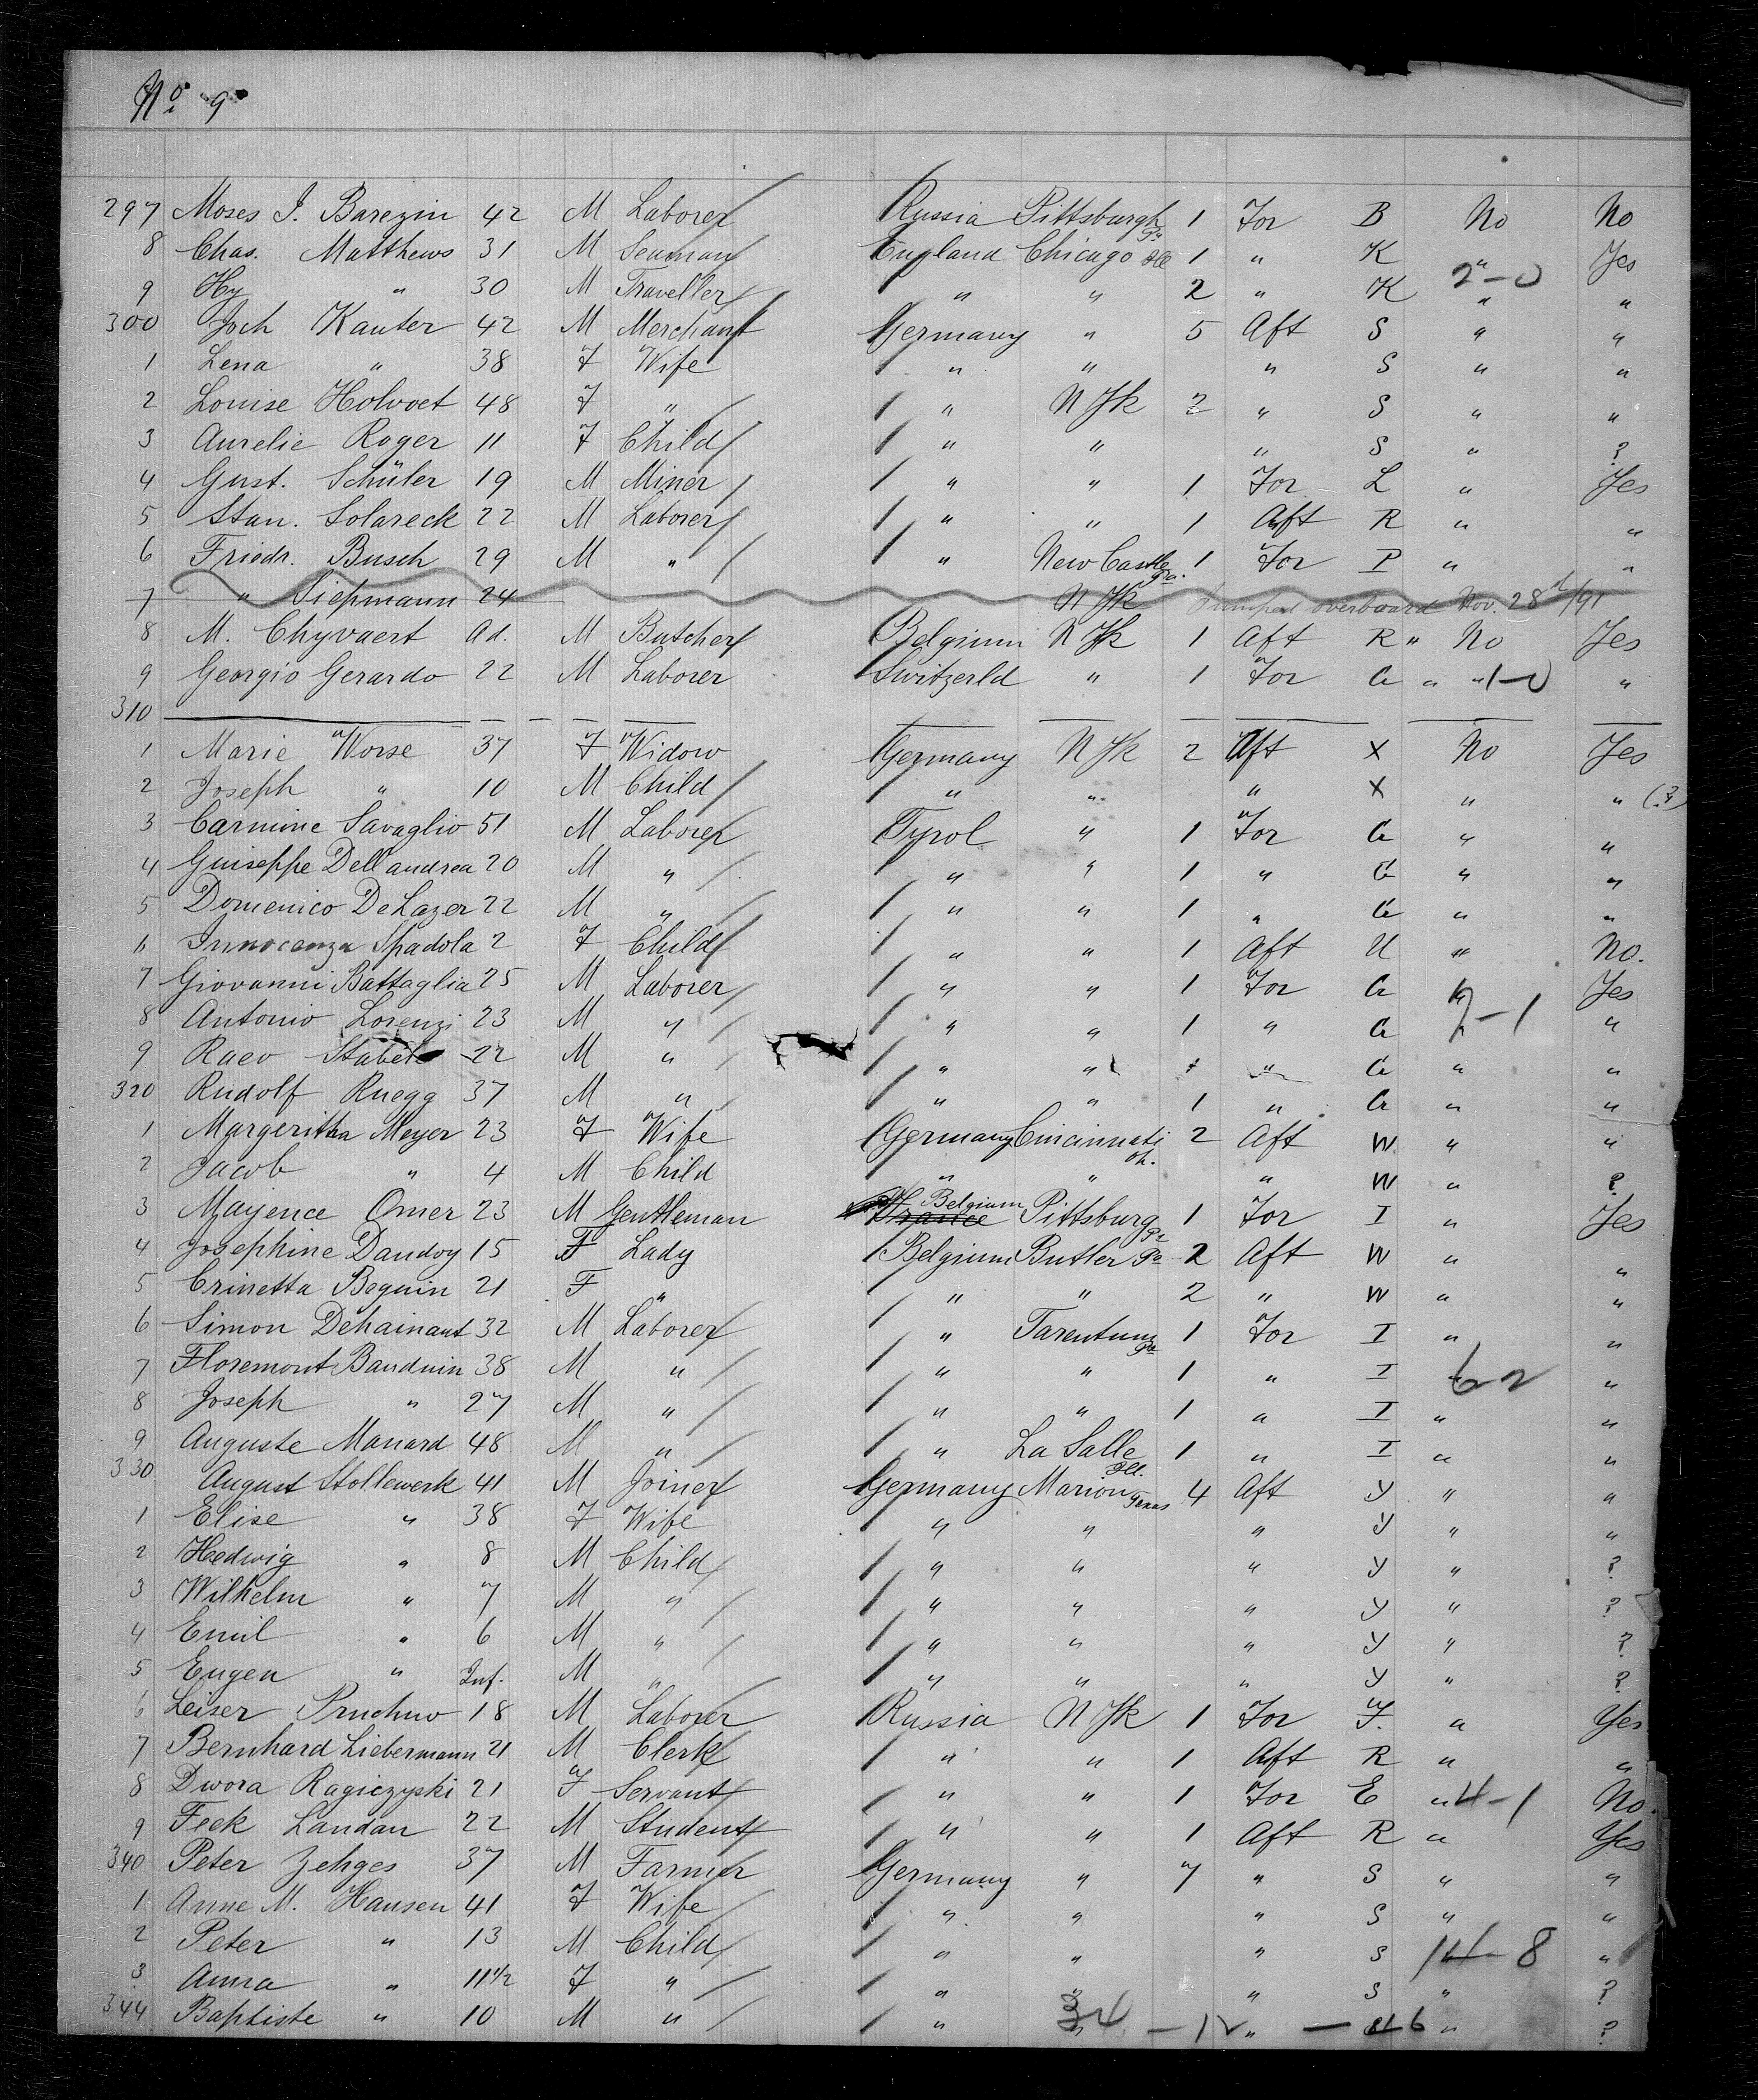 No. 9
297 Moses I. Barezin 42 M Laborer Russia Pittsburgh Pa 1 For B No No
8 Chas. Matthews 31 M Seaman England Chicago Ill 1 " K " Yes
9 Hy " 30 M Traveller " " 2 " K 2-0 " "
300 Joch Kanter 42 M Merchant Germany " 5 Aft S " "
1 Lena " 38 F Wife " " " S " "
2 Louise Holvoet 48 F " " N Yk 2 " S " "
3 Aurelie Roger 11 F Child " " " S " ?
4 Gust. Schüler 19 M Miner " " 1 For L " Yes
5 Stan. Solareck 22 M Laborer " " 1 Aft R " "
6 Friedr. Busch 29 M " " New Castle Pa. 1 For I " "
7 " Siepmann 24 N Yk Jumped overboard Nov. 28th/91
8 M. Chyvaert Ad. M Butcher Belgium N Yk 1 Aft R " No Yes
9 Georgio Gerardo 22 M Laborer Switzerld " 1 For G " " 1-0 "
310
1 Marie Worse 37 F Widow Germany N Yk 2 Aft X No Yes
2 Joseph " 10 M Child " " " X " " (?)
3 Carmine Savaglio 51 M Laborer Tyrol " 1 For G " "
4 Guiseppe Dellandrea 20 M " " " 1 " G " "
5 Domenico DeLazer 22 M " " " 1 " G " "
6 Innocenza Spadola 2 F Child " " 1 Aft U " No.
7 Giovanni Battaglia 25 M Laborer " " 1 For G " Yes
8 Antonio Lorenzi 23 M " " " 1 " G 7-1 "
9 Raev 22 M " " " 1 " G " "
320 Rudolf Ruegg 37 M " " " 1 " G " "
1 Margeritha Meyer 23 F Wife Germany Cincinnati Oh. 2 Aft W " "
2 Jacob " 4 M Child " " " W " ?
3 Mayence Omer 23 M Gentleman France Belgium Pittsburg Pa 1 For I " Yes
4 Josephine Dandoy 15 F Lady Belgium Butler Pa 2 Aft W " "
5 Crinetta Beguin 21 F " " " 2 " W " "
6 Simon Dehainaut 32 M Laborer " Tarentum Pa 1 For I " "
7 Floremont Bauduin 38 M " " " 1 " I 62 "
8 Joseph " 27 M " " " 1 " I " "
9 Auguste Manard 48 M " " La Salle Ill. 1 " I " "
330 August Stollewerk 41 M Joiner Germany Marion Texas 4 Aft Y " "
1 Elise " 38 F Wife " " " Y " "
2 Hedwig " 8 M Child " " " Y " ?
3 Wilhelm " 7 M " " " " Y " ?
4 Emil " 6 M " " " " Y " ?
5 Eugen " Inf. M " " " " Y " ?
6 Leiser Pruchno 18 M Laborer Russia N Yk 1 For F. " Yes
7 Bernhard Liebermann 21 M Clerk " " 1 Aft R " "
8 Dwora Ragiczyski 21 F Servant " " 1 For E " 4-1 No.
9 Feek Landau 22 M Student " " 1 Aft R " Yes
340 Peter Zehges 37 M Farmer Germany " 7 " S " "
1 Anne M. Hansen 41 F Wife " " " S " "
2 Peter " 13 M Child " " " S 14-8 "
3 Anna " 11 1/2 F " " " " S " ?
344 Baptiste " 10 M " " " " " ?
34 - 12 - 46